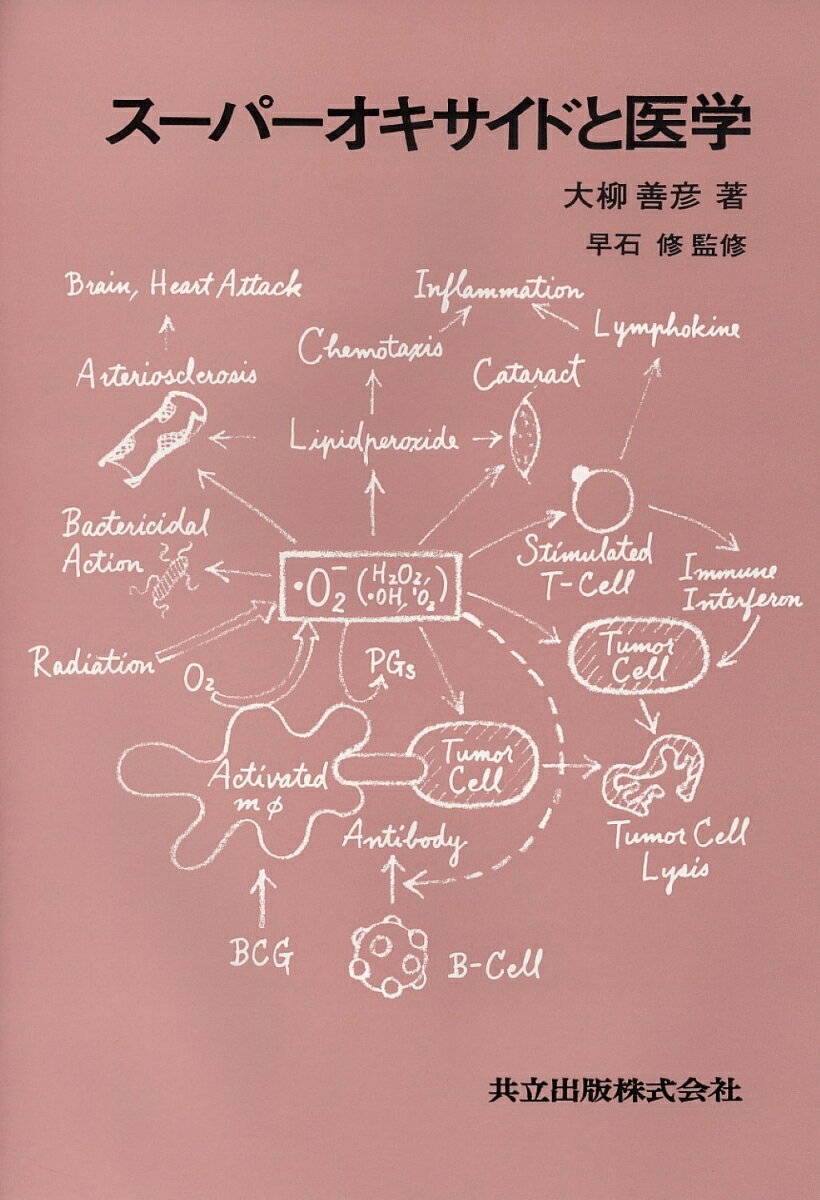 スーパーオキサイドと医学
大柳 善彦 著
早石 修 監修
Brain, Heart Attack
Inflammation
Lymphokine
Chemotaxis
Arteriosclerosis
Cataract
Lipidperoxide
Bactericidal
Action
Stimulated
T-Cell
Immune
Interferon
·O₂⁻ (H₂O₂, ·OH, ¹O₂)
Radiation
O₂
PGs
Tumor
Cell
Activated
mφ
Tumor
Cell
Antibody
Tumor Cell
Lysis
BCG
B-Cell
共立出版株式会社